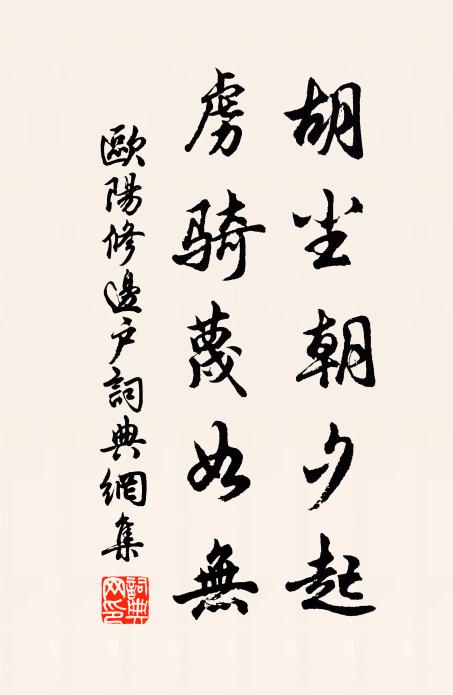 胡尘朝夕起
虏骑蔑如無
歐陽修邊户詞典網集
詞典网印